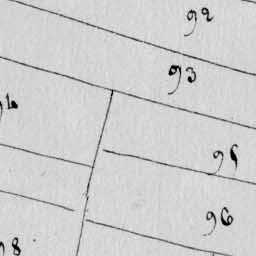 92
93
95
96
98